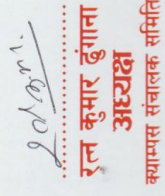 रत्न कुमार ढुंगाना
अध्यक्ष
क्याम्पस संचालक समिति